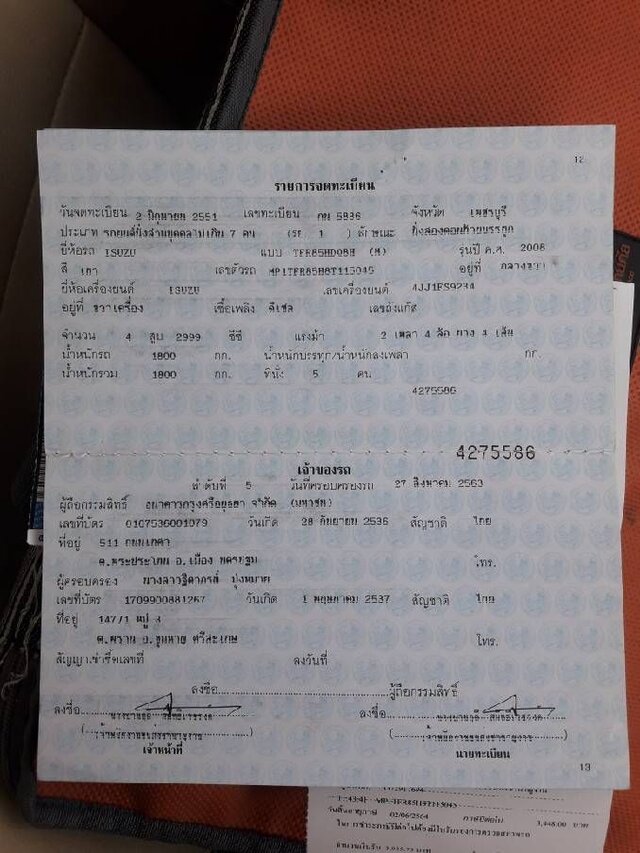 12
รายการจดทะเบียน
วันจดทะเบียน 2 มิถุนายน 2551 เลขทะเบียน กน 5836 จังหวัด เพชรบุรี
ประเภท รถยนต์นั่งส่วนบุคคลไม่เกิน 7 คน (รย. 1 ) ลักษณะ นั่งสองตอนท้ายบรรทุก
ยี่ห้อรถ ISUZU แบบ TFR85HD08H (M) รุ่นปี ค.ศ. 2008
สี เทา เลขตัวรถ MP1TFR85H8T115045 อยู่ที่ กลางขวา
ยี่ห้อเครื่องยนต์ ISUZU เลขเครื่องยนต์ 4JJ1FS9234
อยู่ที่ ขวาเครื่อง เชื้อเพลิง ดีเซล เลขถังแก๊ส
จำนวน 4 สูบ 2999 ซีซี แรงม้า 2 เพลา 4 ล้อ ยาง 4 เส้น
น้ำหนักรถ 1800 กก. น้ำหนักบรรทุก/น้ำหนักลงเพลา กก.
น้ำหนักรวม 1800 กก. ที่นั่ง 5 คน
4275586
4275586
เจ้าของรถ
ลำดับที่ 5 วันที่ครอบครองรถ 27 สิงหาคม 2563
ผู้ถือกรรมสิทธิ์ ธนาคารกรุงศรีอยุธยา จำกัด (มหาชน)
เลขที่บัตร 0107536001079 วันเกิด 28 กันยายน 2536 สัญชาติ ไทย
ที่อยู่ 511 ถนนเพศา
ต.พระประโทน อ.เมือง นครปฐม โทร.
ผู้ครอบครอง นางสาวฐิตาภรณ์
เลขที่บัตร 1709900881267 วันเกิด 1 พฤษภาคม 2537 สัญชาติ ไทย
ที่อยู่ 147/1 หมู่
ต.พราน อ.ขุนหาญ ศรีสะเกษ โทร.
สัญญาเช่าซื้อเลขที่ ลงวันที่
ลงชื่อ ผู้ถือกรรมสิทธิ์
ลงชื่อ ลงชื่อ
เจ้าหน้าที่ นายทะเบียน
13
วันสิ้นอายุภาษี 02/06/2564